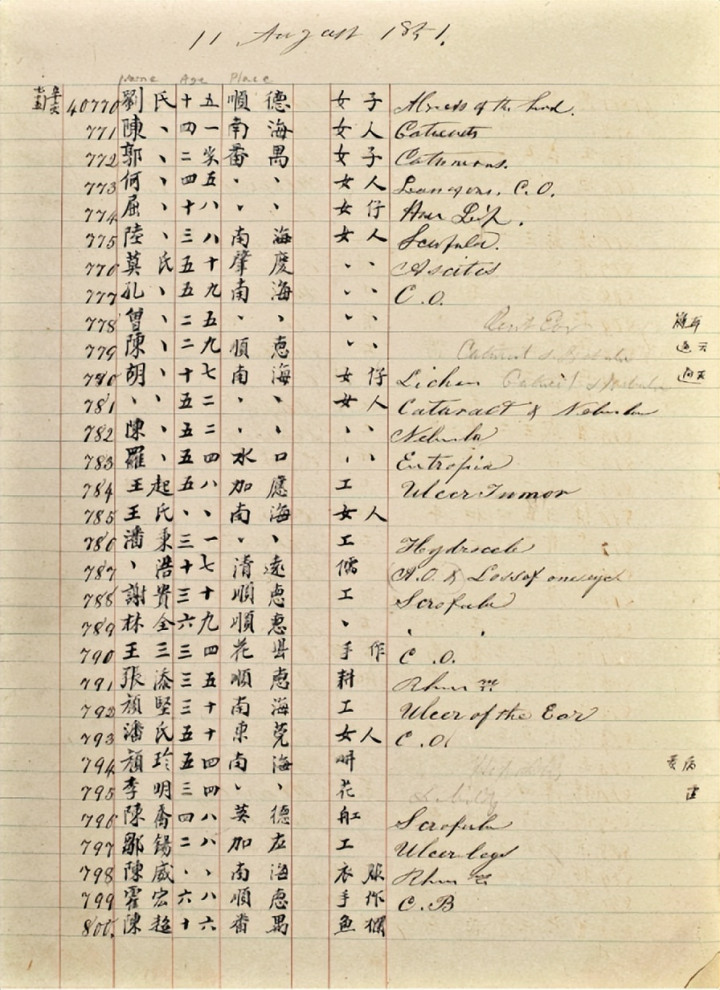 11 August 1851.
Name Age Place
40770 劉 氏 十 五 順 德 女 子 Abscess of the hand.
771 陳 、 四 一 南 海 女 人 Cataracts
772 郭 、 二 番 禺 女 子
773 何 、 四 五 、 、 女 人 C. O.
774 屈 、 十 八 、 、 女 仔 Hare Lip.
775 陸 、 三 八 南 海 女 人 Scrofula.
776 莫 氏 五 十 肇 慶 、 、 Ascites
777 孔 、 五 九 南 海 、 、 C. O.
778 曾 、 二 五 、 、 、 、
779 陳 、 二 九 順 惪 、 、 Cataract & Nebula
780 胡 、 十 七 南 海 女 仔 Lichen Cataract & Nebula
781 、 、 五 二 、 、 女 人 Cataract & Nebula
782 陳 、 五 二 、 、 、 、 Nebula
783 羅 、 五 四 水 口 、 、 Entropia
784 王 起 五 八 加 應 工 Ulcer Tumor
785 王 氏 、 、 南 海 女 人
786 潘 秉 三 一 、 、 工 Hydrocele
787 、 浩 十 七 清 遠 儒 A. O. & Loss of one eye
788 謝 貴 三 十 順 惪 工 Scrofula
789 林 全 六 九 順 惪 、 . .
790 王 三 三 四 花 縣 手 作 C. O.
791 張 添 三 五 順 惪 耕 Rhum
792 顏 堅 三 十 南 海 工 Ulcer of the Ear
793 潘 氏 五 十 東 莞 女 人 C. O.
794 顏 玲 五 四 南 海
795 李 明 三 四 、 、 花 Debility
796 陳 喬 四 八 英 德 舡 Scrofula
797 鄒 錫 二 八 加 應 工 Ulcer legs
798 陳 威 、 、 南 海 衣 服 Rhum
799 霍 宏 六 八 順 惪 手 作 C. B
800. 陳 超 十 六 番 禺 魚 欄